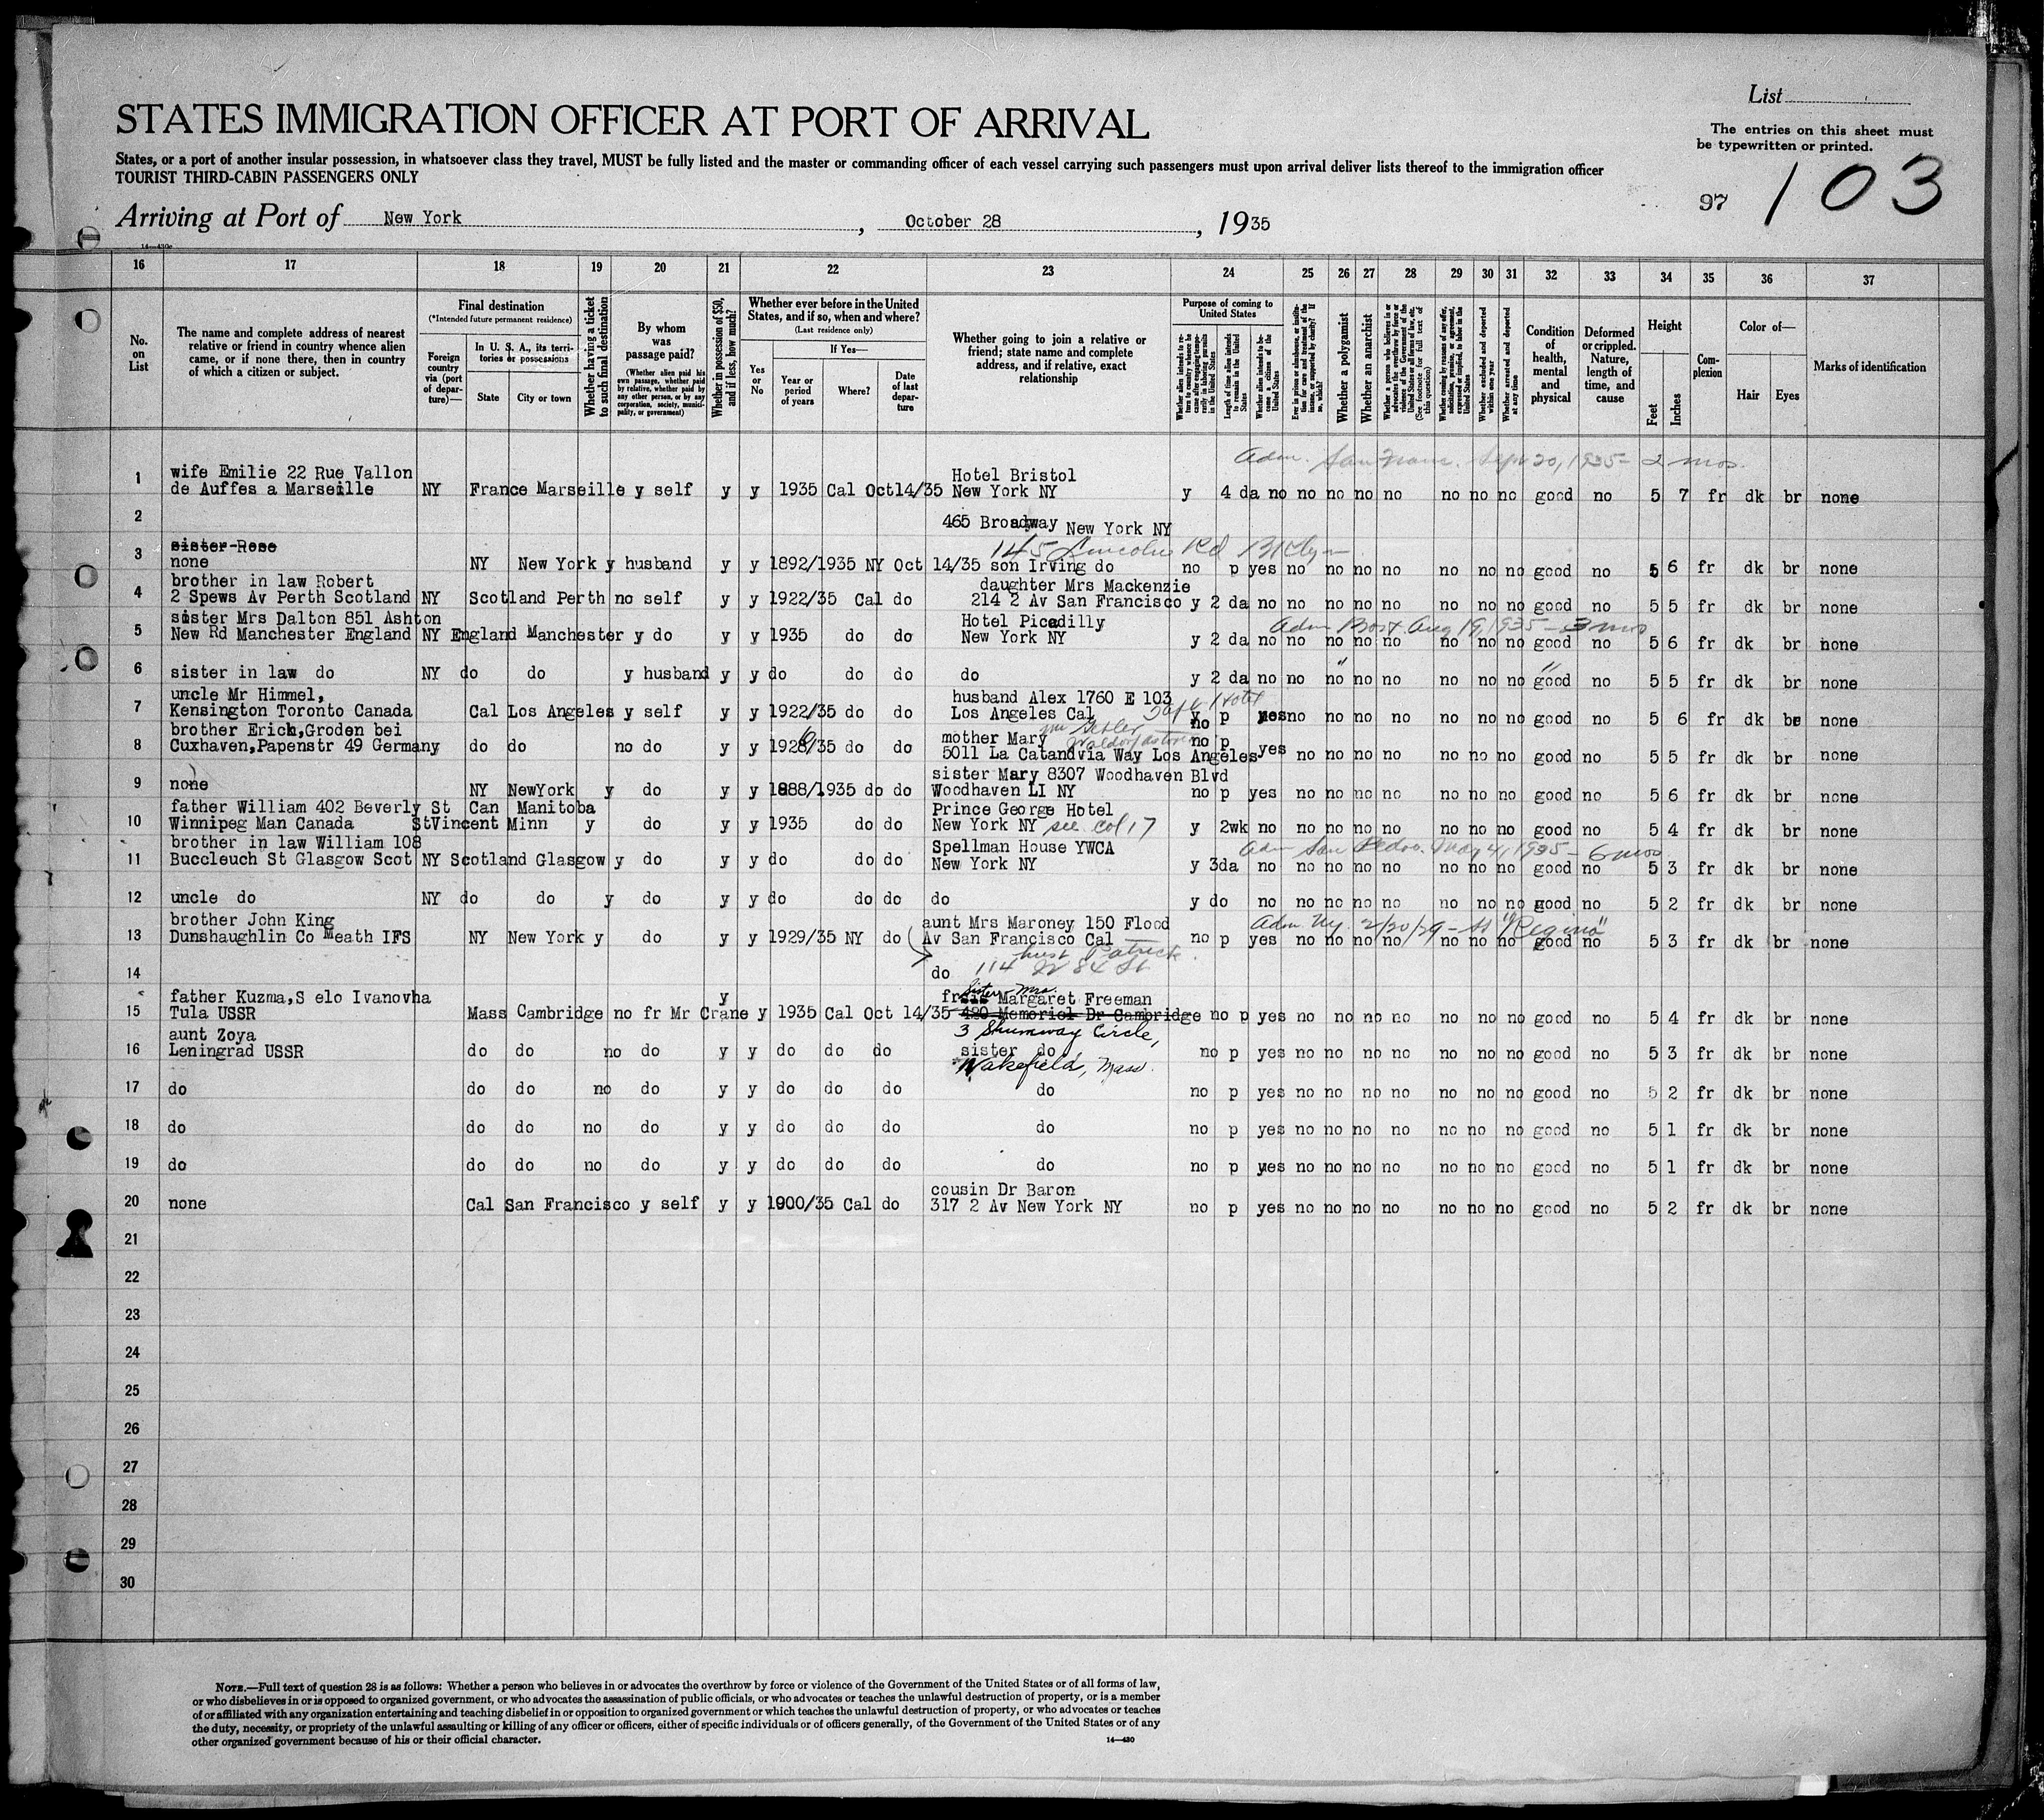 List
STATES IMMIGRATION OFFICER AT PORT OF ARRIVAL
The entries on this sheet must
be typewritten or printed.
States, or a port of another insular possession, in whatsoever class they travel, MUST be fully listed and the master or commanding officer of each vessel carrying such passengers must upon arrival deliver lists thereof to the immigration officer
TOURIST THIRD-CABIN PASSENGERS ONLY
97 103
Arriving at Port of New York, October 28, 1935
14—430c
16 17 18 19 20 21 22 23 24 25 26 27 28 29 30 31 32 33 34 35 36 37
No. on List
The name and complete address of nearest relative or friend in country whence alien came, or if none there, then in country of which a citizen or subject.
Final destination
(*Intended future permanent residence)
Foreign country via (port of departure)—
In U. S. A., its territories or possessions
State City or town
Whether having a ticket to such final destination
By whom was passage paid?
(Whether alien paid his own passage, whether paid by relative, whether paid by any other person, or by any corporation, society, municipality, or government)
Whether in possession of $50, and if less, how much?
Whether ever before in the United States, and if so, when and where?
(Last residence only)
Yes or No
If Yes—
Year or period of years
Where?
Date of last departure
Whether going to join a relative or friend; state name and complete address, and if relative, exact relationship
Purpose of coming to United States
Whether alien intends to return to country whence he came after engaging temporarily in laboring pursuits in the United States
Length of time alien intends to remain in the United States
Whether alien intends to become a citizen of the United States
Ever in prison or almshouse, or institution for care and treatment of the insane, or supported by charity? If so, which?
Whether a polygamist
Whether an anarchist
Whether a person who believes in or advocates the overthrow by force or violence of the Government of the United States or all forms of law, etc. (See footnote for full text of this question)
Whether coming by reason of any offer, solicitation, promise, or agreement, expressed or implied, to labor in the United States
Whether excluded and deported within one year
Whether arrested and deported at any time
Condition of health, mental and physical
Deformed or crippled. Nature, length of time, and cause
Height
Feet Inches
Complexion
Color of—
Hair Eyes
Marks of identification
Adm. San Franc. Sept 20, 1935 - 2 mos.
1 wife Emilie 22 Rue Vallon Hotel Bristol
de Auffes a Marseille NY France Marseille y self y y 1935 Cal Oct14/35 New York NY y 4 da no no no no no no no no good no 5 7 fr dk br none
2 465 Broadway New York NY
sister Rose 145 Lincoln Rd Bklyn
3 none NY New York y husband y y 1892/1935 NY Oct 14/35 son Irving do no p yes no no no no no no no good no 5 6 fr dk br none
4 brother in law Robert daughter Mrs Mackenzie
2 Spews Av Perth Scotland NY Scotland Perth no self y y 1922/35 Cal do 214 2 Av San Francisco y 2 da no no no no no no no no good no 5 5 fr dk br none
5 sister Mrs Dalton 851 Ashton Hotel Picadilly Adm Bost. Aug 19, 1935 - 3 mos
New Rd Manchester England NY England Manchester y do y y 1935 do do New York NY y 2 da no no no no no no no no good no 5 6 fr dk br none
6 sister in law do NY do do y husband y y do do do do y 2 da no no no no no no no no good no 5 5 fr dk br none
7 uncle Mr Himmel, husband Alex 1760 E 103 Hotel
Kensington Toronto Canada Cal Los Angeles y self y y 1922/35 do do Los Angeles Cal no p yes no no no no no no no good no 5 6 fr dk br none
8 brother Erich, Groden bei mother Mary Waldorf Astoria
Cuxhaven, Papenstr 49 Germany do do no do y y 1926/35 do do 5011 La Catandvia Way Los Angeles no p yes no no no no no no no good no 5 5 fr dk br none
sister Mary 8307 Woodhaven Blvd
9 none NY NewYork y do y y 1888/1935 do do Woodhaven LI NY no p yes no no no no no no no good no 5 6 fr dk br none
10 father William 402 Beverly St Can Manitoba Prince George Hotel
Winnipeg Man Canada StVincent Minn y do y y 1935 do do New York NY see col 17 y 2wk no no no no no no no no good no 5 4 fr dk br none
11 brother in law William 108 Spellman House YWCA Adm San Pedro. May 4, 1935 - 6 mos
Buccleuch St Glasgow Scot NY Scotland Glasgow y do y y do do do New York NY y 3da no no no no no no no no good no 5 3 fr dk br none
12 uncle do NY do do y do y y do do do do y do no no no no no no no no good no 5 2 fr dk br none
13 brother John King aunt Mrs Maroney 150 Flood Adm Ny. 2/20/29 - SS "Regina"
Dunshaughlin Co Meath IFS NY New York y do y y 1929/35 NY do Av San Francisco Cal no p yes no no no no no no no good no 5 3 fr dk br none
husb Patrick
14 do 114 W 84 St
15 father Kuzma, S elo Ivanovha y Sister Mrs. Margaret Freeman
Tula USSR Mass Cambridge no fr Mr Crane y 1935 Cal Oct 14/35 420 Memoriel Dr Cambridge no p yes no no no no no no no good no 5 4 fr dk br none
3 Shumway Circle,
16 aunt Zoya
Leningrad USSR do do no do y y do do do sister do no p yes no no no no no no no good no 5 3 fr dk br none
Wakefield, Mass.
17 do do do no do y y do do do do no p yes no no no no no no no good no 5 2 fr dk br none
18 do do do no do y y do do do do no p yes no no no no no no no good no 5 1 fr dk br none
19 do do do no do y y do do do do no p yes no no no no no no no good no 5 1 fr dk br none
cousin Dr Baron
20 none Cal San Francisco y self y y 1900/35 Cal do 317 2 Av New York NY no p yes no no no no no no no good no 5 2 fr dk br none
21
22
23
24
25
26
27
28
29
30
NOTE.—Full text of question 28 is as follows: Whether a person who believes in or advocates the overthrow by force or violence of the Government of the United States or of all forms of law,
or who disbelieves in or is opposed to organized government, or who advocates the assassination of public officials, or who advocates or teaches the unlawful destruction of property, or is a member
of or affiliated with any organization entertaining and teaching disbelief in or opposition to organized government or which teaches the unlawful destruction of property, or who advocates or teaches
the duty, necessity, or propriety of the unlawful assaulting or killing of any officer or officers, either of specific individuals or of officers generally, of the Government of the United States or of any
other organized government because of his or their official character.
14—430